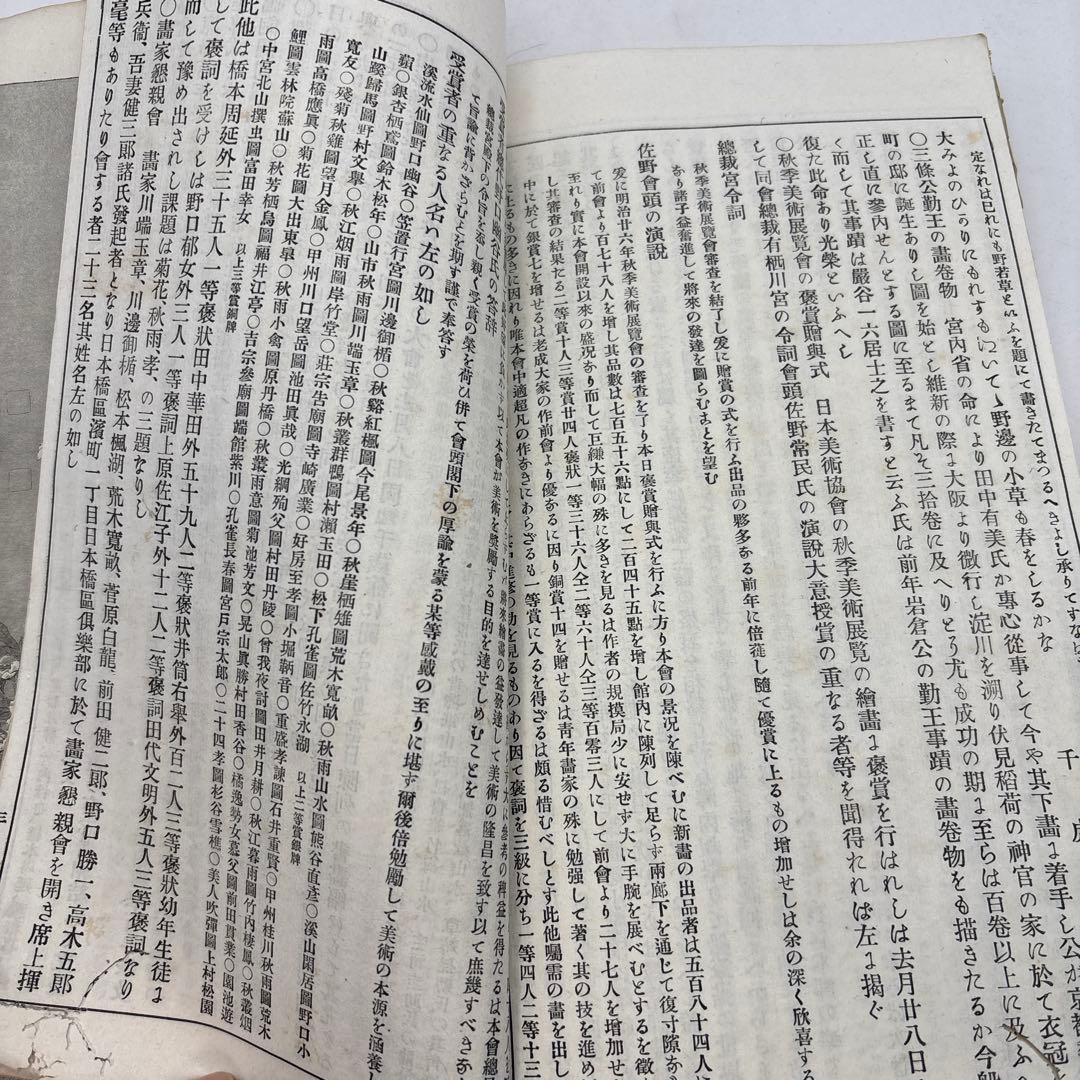 定なれは已れにも野若草といふを題にて書きたてまつるへきよし承りてすな
大みよのひかりにもれすもにいてし野邊の小草も春をしるかな 千
〇三條公勤王の畫卷物 宮内省の命により田中有美氏か專心從事して今や其下畫に着手し公が京都
町の邸に誕生ありし圖を始とし維新の際大阪より微行し淀川を溯り伏見稻荷の神官の家に於て衣冠を
正し直に參内せんとする圖に至るまて凡そ三拾卷に及へりとう尤も成功の期に至らは百卷以上に及ふ
くして其事蹟は嚴谷一六居士之を書すと云ふ氏は前年岩倉公の勤王事蹟の畫卷物をも描きたるか今般
復た此命あり光榮といふへし
〇秋季美術展覽會の褒賞贈與式 日本美術協會の秋季美術展覽の繪畫に褒賞を行はれしは去月廿八日
して同會總裁有栖川宮の令詞會頭佐野常民氏の演說大意授賞の重なる者等を聞得れれば左に揭ぐ
總裁宮令詞
秋季美術展覽會審查を結了し爰に贈賞の式を行ふ出品の夥多なる前年に倍蓰し隨て優賞に上るもの增加せしは余の深く欣喜する
なり諸子益奮進して將來の發達を圖らむことを望む
佐野會頭の演說
爰に明治廿六年秋季美術展覽會の審查を了り本日褒賞贈與式を行ふに方り本會の景況を陳べむに新畫の出品者は五百八十四人に
て前會より百七十八人を增し其品數は七百五十六點にして二百四十五點を增し館内に陳列して足らず兩廊下を通じて復寸隙なき
至れり實に本會開設以來の盛况なり而して巨縑大幅の殊に多きを見るは作者の規摸局少に安せず大に手腕を展べむとするを徵
し其審查の結果たる二等賞十人三等賞廿四人褒狀一等三十六人仝二等六十人仝三等百零三人にして前會より二十七人を增加せ
中に於て銀賞七を增せるは老成大家の作前會より優なるに因り銅賞十四を贈せるは青年畫家の殊に勉强して著く其の技を進め
に上るもの多きに因れり唯本會中適超凡の作なきにあらざるも一等賞に入るを得ざるは頗る惜むべしとす此他囑需の畫を出し
の勁を見るものあり因て褒詞を三級に分ち一等四人二等十三
本會か美術を奬勵する目的を達せしめむことを
氏の答辞
て旨諭に背かざらむことを期す謹て奉答す
受賞者の重なる人名ハ左の如し
溪流水仙圖野口幽谷〇笠置行宮圖川邊御楯〇秋谿紅楓圖今尾景年〇秋崖栖雉圖荒木寬畝〇秋雨山水圖熊谷直彥〇溪山閑居圖野口小
蘋〇銀杏栖鳶圖鈴木松年〇山市秋雨圖川端玉章〇秋叢群鴨圖村瀨玉田〇松下孔雀圖佐竹永湖 以上二等賞銀牌
山蹊歸馬圖野村文擧〇秋江烟雨圖岸竹堂〇莊宗告廟圖寺崎廣業〇好房至孝圖小堀鞆音〇重盛孝諫圖石井重賢〇甲州桂川秋雨圖荒木
寬友〇殘菊秋雞圖望月金鳳〇甲州川口望岳圖池田眞哉〇光綱殉父圖村田丹陵〇曾我夜討圖田井月耕〇秋江暮雨圖竹内棲鳳〇秋叢烟
雨圖高橋應眞〇菊花圖大出東皐〇秋雨小禽圖原丹橋〇秋叢雨意圖菊池芳文〇晃山眞勝村田香谷〇橘逸勢女慕父圖前田貫業〇園池遊
鯉圖雲林院蘇山〇秋芳栖鳥圖福井江亭〇吉宗參廟圖端館紫川〇孔雀長春圖宮戸宗太郎〇二十四孝圖杉谷雪樵〇美人吹彈圖上村松園
〇中宮北山撰虫圖富田幸女 以上三等賞銅牌
此他は橋本周延外三十五人一等褒狀田中華田外五十九人二等褒狀井筒右擧外百二人三等褒狀幼年生徒に
して褒詞を受けしは野口郁女外三人一等褒詞上原佐江子外十二人二等褒詞田代文明外五人三等褒詞なり
而して豫め出されし課題は菊花、秋雨孝、の三題なりし
〇畫家懇親會 畫家川端玉章、川邊御楯、松本楓湖、荒木寬畝、菅原白龍、前田健二郎、野口勝一、高木五郎
兵衞、吾妻健三郎諸氏發起者となり日本橋區濱町一丁目日本橋區俱樂部に於て畫家懇親會を開き席上揮
毫等もありたり會する者二十三名其姓名左の如し
三